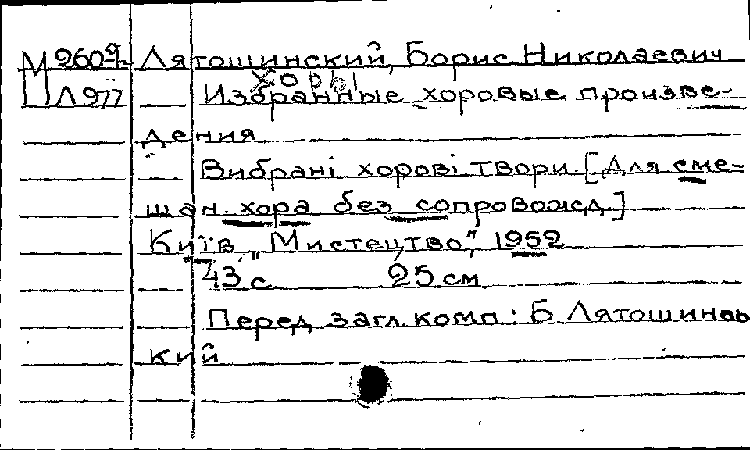 М 2609 Лятошинский, Борис Николаевич
Хоры
Л 977 Избранные хоровые произве-
дения
Вибрані хорові твори. [Для сме-
шан. хора без сопровожд.]
Київ, „Мистецтво", 1952
43 с 25 см
Перед загл. комп: Б Лятошинсь
кий